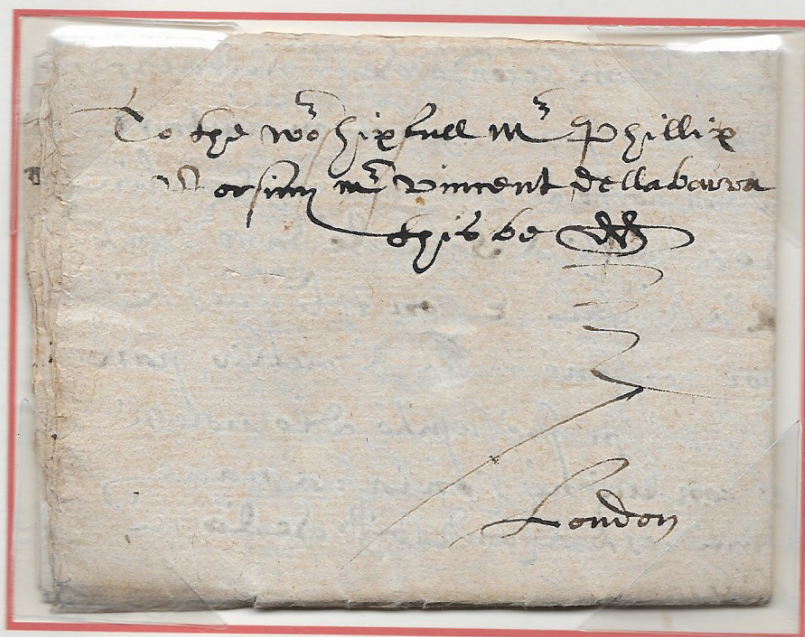 To the worshipfull mr Phillip
Corsiny mr vincent dellabarra
this be dd
London